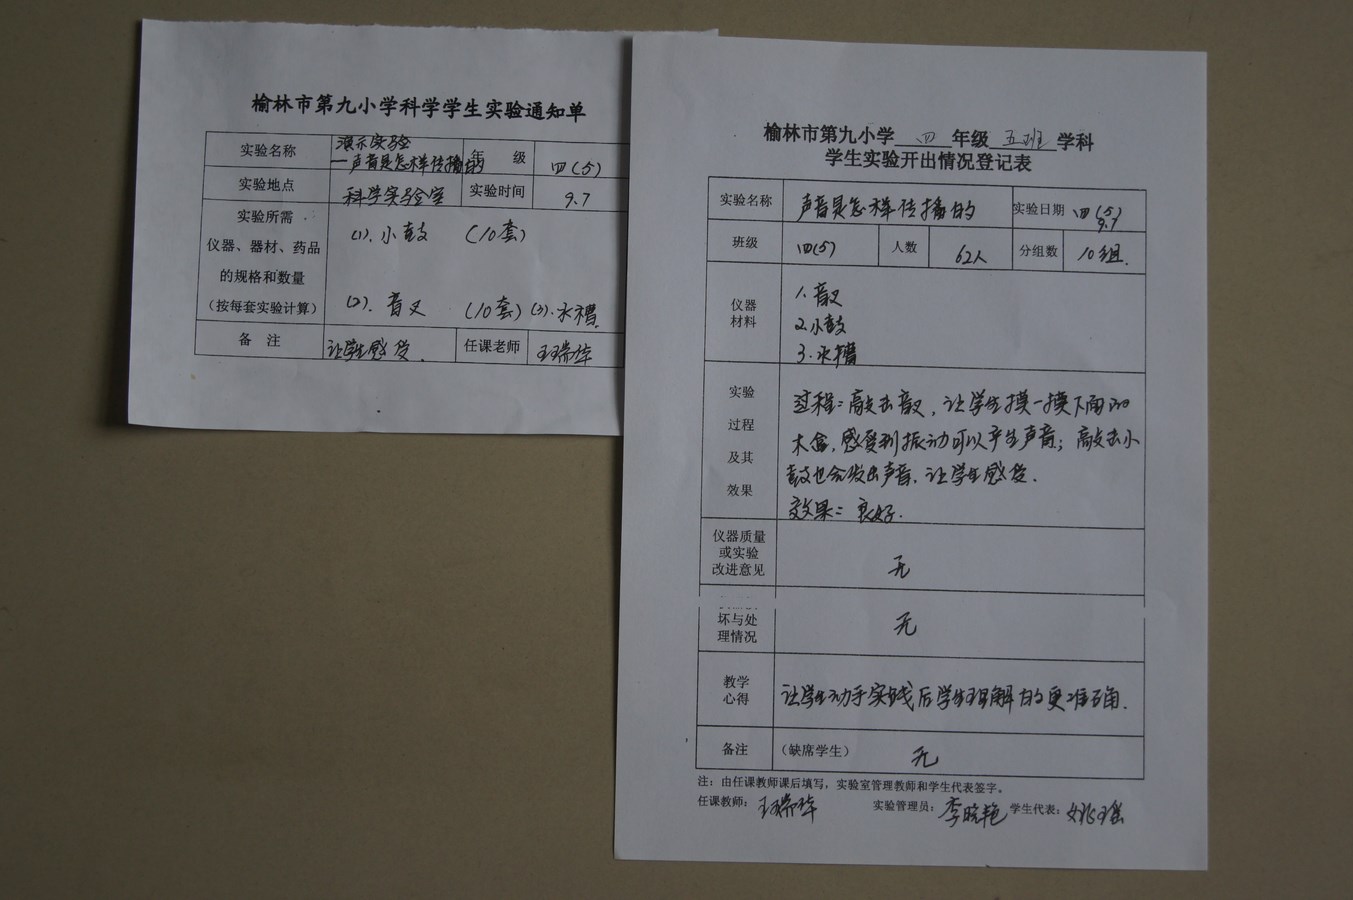 榆林市第九小学科学学生实验通知单
实验名称 演示实验
—声音是怎样传播的 年 级 四(5)
实验地点 科学实验室 实验时间 9.7
实验所需
仪器、器材、药品
的规格和数量
(按每套实验计算)
(1). 小鼓 (10套)
(2). 音叉 (10套) (3). 水槽
备 注 让学生感受. 任课老师
榆林市第九小学 四 年级 五班 学科
学生实验开出情况登记表
实验名称 声音是怎样传播的 实验日期 四(5)
9.7
班级 四(5) 人数 62人 分组数 10组.
仪器
材料
1. 音叉
2. 小鼓
3. 水槽
实验
过程
及其
效果
过程: 敲击音叉, 让学生摸一摸下面的
木盒, 感受到振动可以产生声音; 敲击小
鼓也会发出声音. 让学生感受.
效果: 良好.
仪器质量
或实验
改进意见
无
坏与处
理情况
无
教学
心得
让学生动手实践后学生理解的更准确.
备注 (缺席学生) 无
注: 由任课教师课后填写, 实验室管理教师和学生代表签字。
任课教师: 实验管理员: 李晓艳 学生代表: 姚瑶